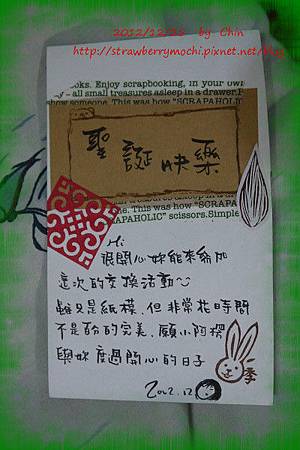 by Chin
http://strawberrymochi.pixnet.net/blog
oks. Enjoy scrapbooking, in your own
g – all small treasures asleep in a drawer.
show someone. This was how "SCRAPAHOLIC
聖誕快樂
asleep in a drawer.
This was how "SCR
PAHOLIC" scissors.Simple
Hi
很開心妳能來參加
這次的交換活動~
雖只是紙模,但非常花時間
不是 的完美,願小阿楞
與妳度過開心的日子
2012.12
季